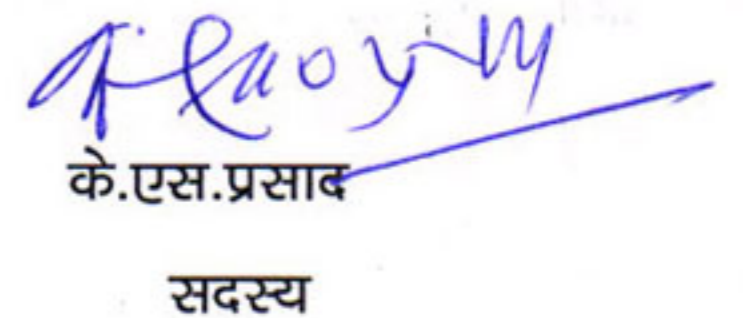 के.एस.प्रसाद
सदस्य